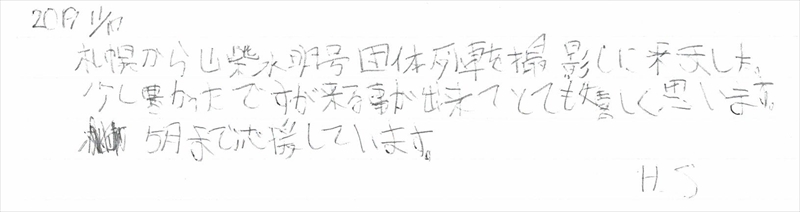 2019 11/17
札幌から山紫水明号団体列車を撮影しに来ました。
少し寒かったですが来る事が出来てとても嬉しく思います。
5月まで応援しています。
H.S